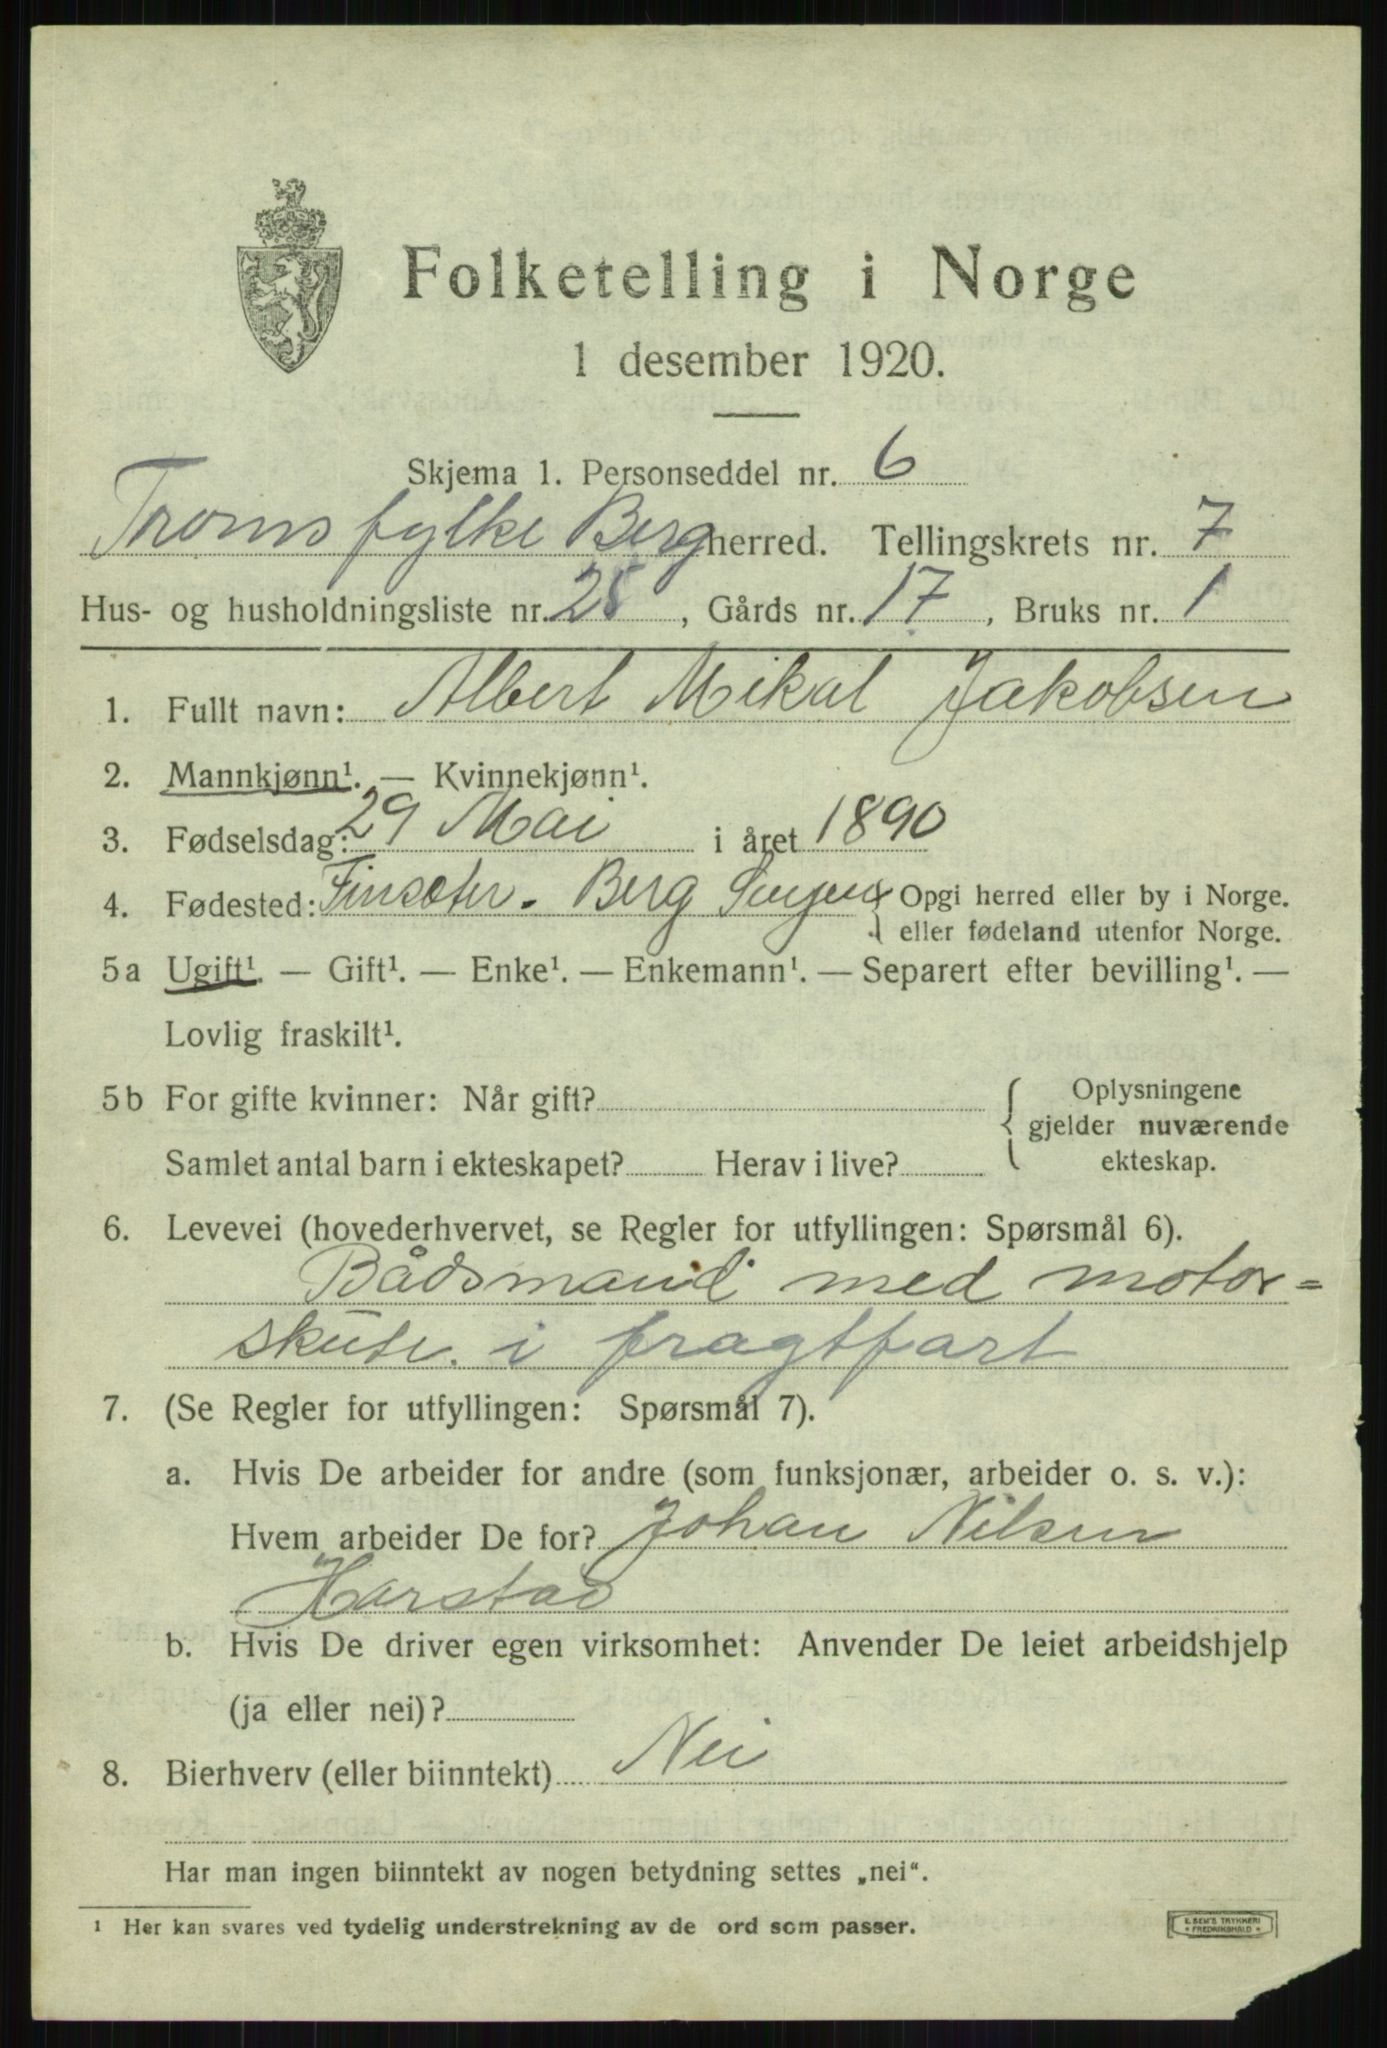 Folketelling i Norge
1 desember 1920.
Skjema 1. Personseddel nr. 6
Troms fylke Berg herred. Tellingskrets nr. 7
Hus- og husholdningsliste nr. 25, Gårds nr. 17, Bruks nr. 1
1. Fullt navn: Albert Mikal Jakobsen
2. Mannkjønn¹. — Kvinnekjønn¹.
3. Fødselsdag: 29 Mai i året 1890
4. Fødested: Finsæter. Berg Opgi herred eller by i Norge.
eller fødeland utenfor Norge.
5a Ugift¹. — Gift¹. — Enke¹. — Enkemann¹. — Separert efter bevilling¹. —
Lovlig fraskilt¹.
5b For gifte kvinner: Når gift? Oplysningene
gjelder nuværende
Samlet antal barn i ekteskapet? Herav i live? ekteskap.
6. Levevei (hovederhvervet, se Regler for utfyllingen: Spørsmål 6).
Bådsmand med motor=
skute. i fragtfart
7. (Se Regler for utfyllingen: Spørsmål 7).
a. Hvis De arbeider for andre (som funksjonær, arbeider o. s. v.):
Hvem arbeider De for? Johan Nilsen
Harstad
b. Hvis De driver egen virksomhet: Anvender De leiet arbeidshjelp
(ja eller nei)?
8. Bierhverv (eller biinntekt) Nei
Har man ingen biinntekt av nogen betydning settes „nei“.
¹ Her kan svares ved tydelig understrekning av de ord som passer.
E. SEM'S TRYKKERI
FREDRIKSHALD